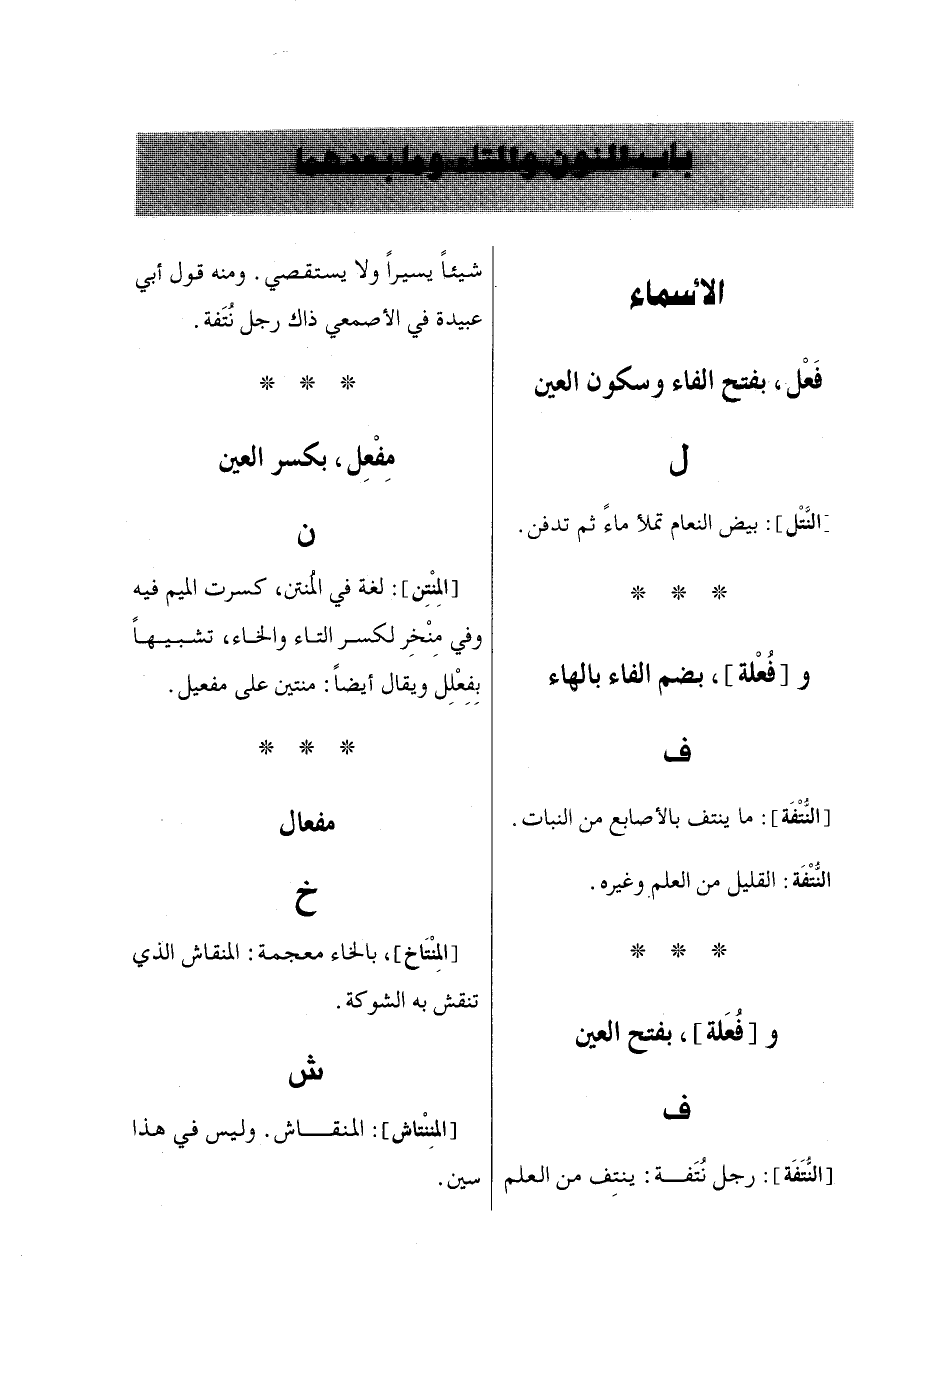 باب النون والتاء وما بعدهما
الأسماء
فَعْل، بفتح الفاء وسكون العين
ل
[النَّتْل]: بيض النعام تملأ ماءً ثم تدفن.
* * *
و [فُعْلة]، بضم الفاء بالهاء
ف
[النُّتْفَة]: ما ينتف بالأصابع من النبات.
النُّتْفَة: القليل من العلم وغيره.
* * *
و [فُعَلة]، بفتح العين
ف
[النُّتَفَة]: رجل نُتَفـة: ينتِف من العلم
شيئاً يسيراً ولا يستقصي. ومنه قول أبي
عبيدة في الأصمعي ذاك رجل نُتَفة.
* * *
مِفْعِل، بكسر العين
ن
[المِنْتِن]: لغة في المُنتن، كسرت الميم فيه
وفي مِنْخِر لكسر التاء والخاء، تشبيهاً
بِفِعْلِل ويقال أيضاً: منتين على مفعيل.
* * *
مفعال
خ
[المِنْتَاخ]، بالخاء معجمة: المنقاش الذي
تنقش به الشوكة.
ش
[المِنْتاش]: المنقـاش. وليس في هذا
سين.